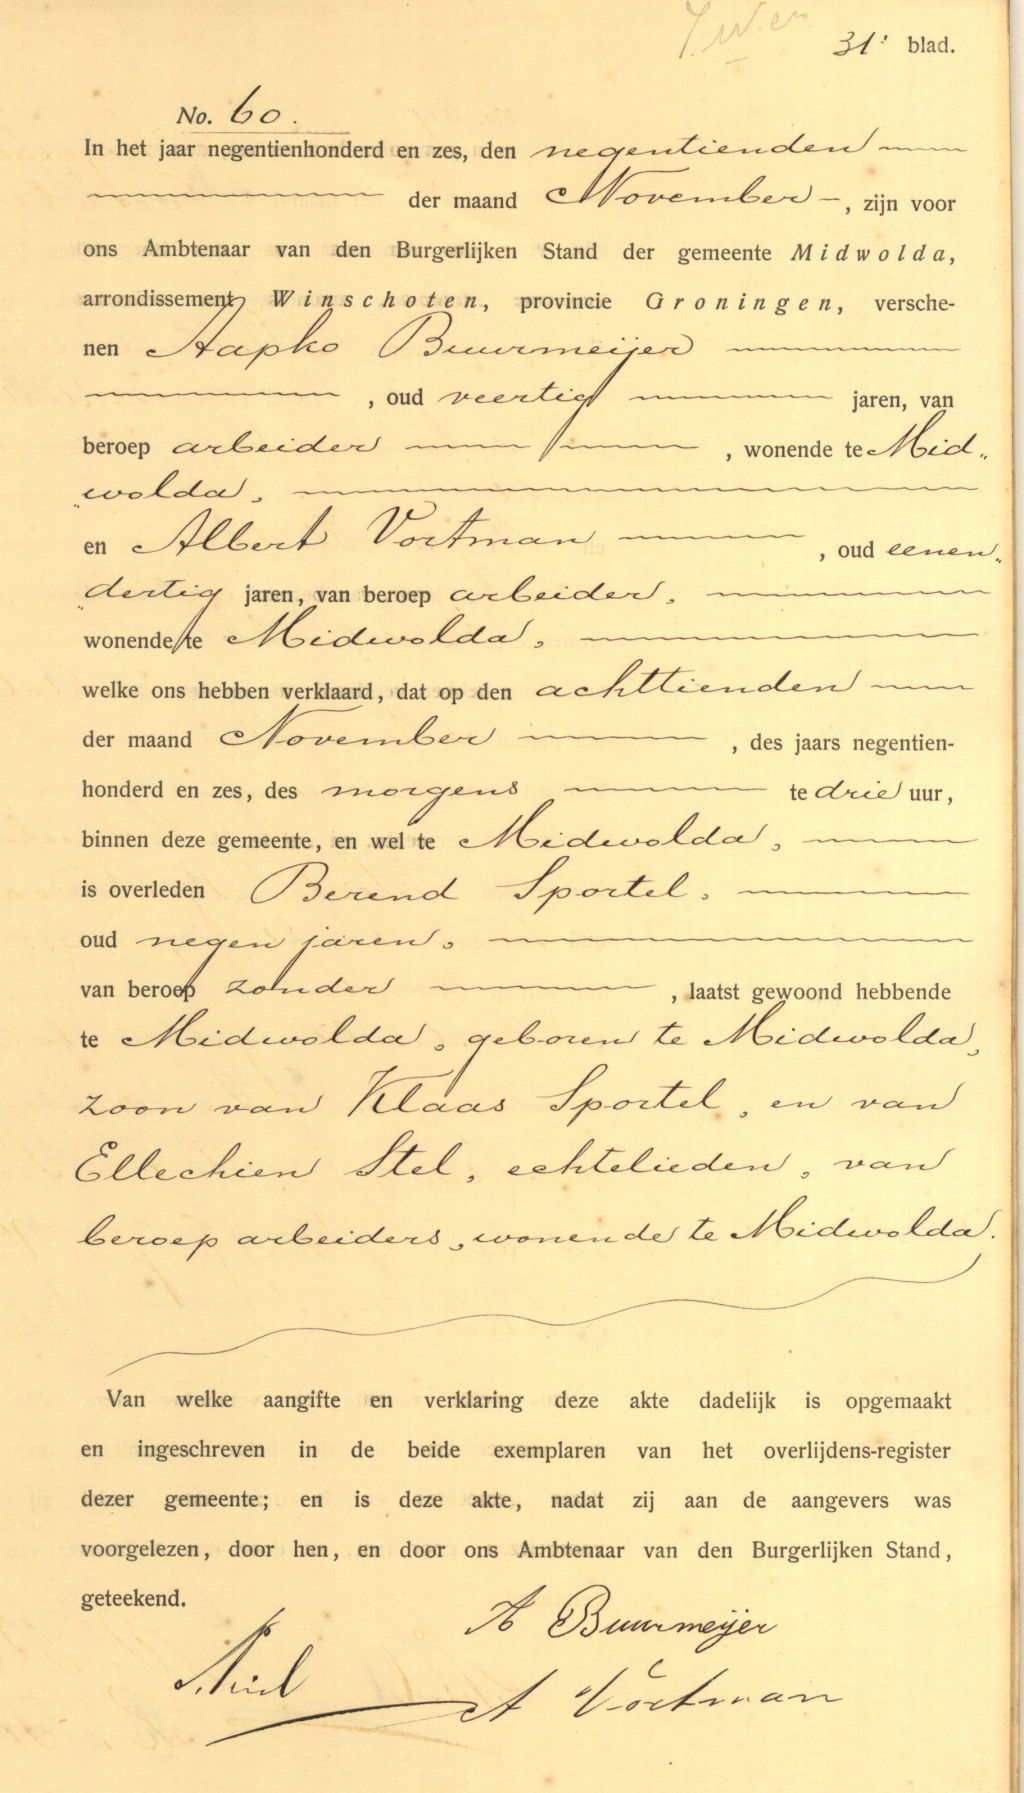 31e blad.
No. 60.
In het jaar negentienhonderd en zes, den negentienden
der maand November, zijn voor
ons Ambtenaar van den Burgerlijken Stand der gemeente Midwolda,
arrondissement Winschoten, provincie Groningen, versche-
nen Aapko Buurmeijer
, oud veertig jaren, van
beroep arbeider, wonende te Mid„
„wolda,
en Albert Vortman, oud eenen„
„dertig jaren, van beroep arbeider,
wonende te Midwolda,
welke ons hebben verklaard, dat op den achttienden
der maand November, des jaars negentien-
honderd en zes, des morgens te drie uur,
binnen deze gemeente, en wel te Midwolda,
is overleden Berend Sportel,
oud negen jaren,
van beroep zonder, laatst gewoond hebbende
te Midwolda, geboren te Midwolda,
zoon van Klaas Sportel, en van
Ellechien Stel, echtelieden, van
beroep arbeiders, wonende te Midwolda.
Van welke aangifte en verklaring deze akte dadelijk is opgemaakt
en ingeschreven in de beide exemplaren van het overlijdens-register
dezer gemeente; en is deze akte, nadat zij aan de aangevers was
voorgelezen, door hen, en door ons Ambtenaar van den Burgerlijken Stand,
geteekend.
A Buurmeijer
A Vortman